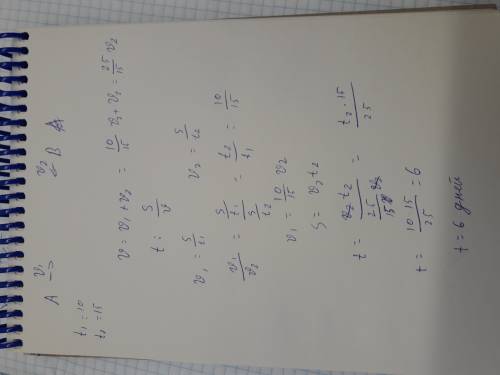 A v₁ → v₂ ← B
t₁ = 10
t₂ = 15
v = v₁ + v₂ = 10/15 v₂ + v₂ = 25/15 v₂
t = S/v
v₁ = S/t₁ v₂ = S/t₂
v₁/v₂ = (S/t₁)/(S/t₂) = t₂/t₁ = 10/15
v₁ = 10/15 v₂
S = v₂ t₂
t = v₂ t₂ / (25/15 v₂) = t₂ · 15/25
t = 10 · 15/25 = 6
t = 6 дней